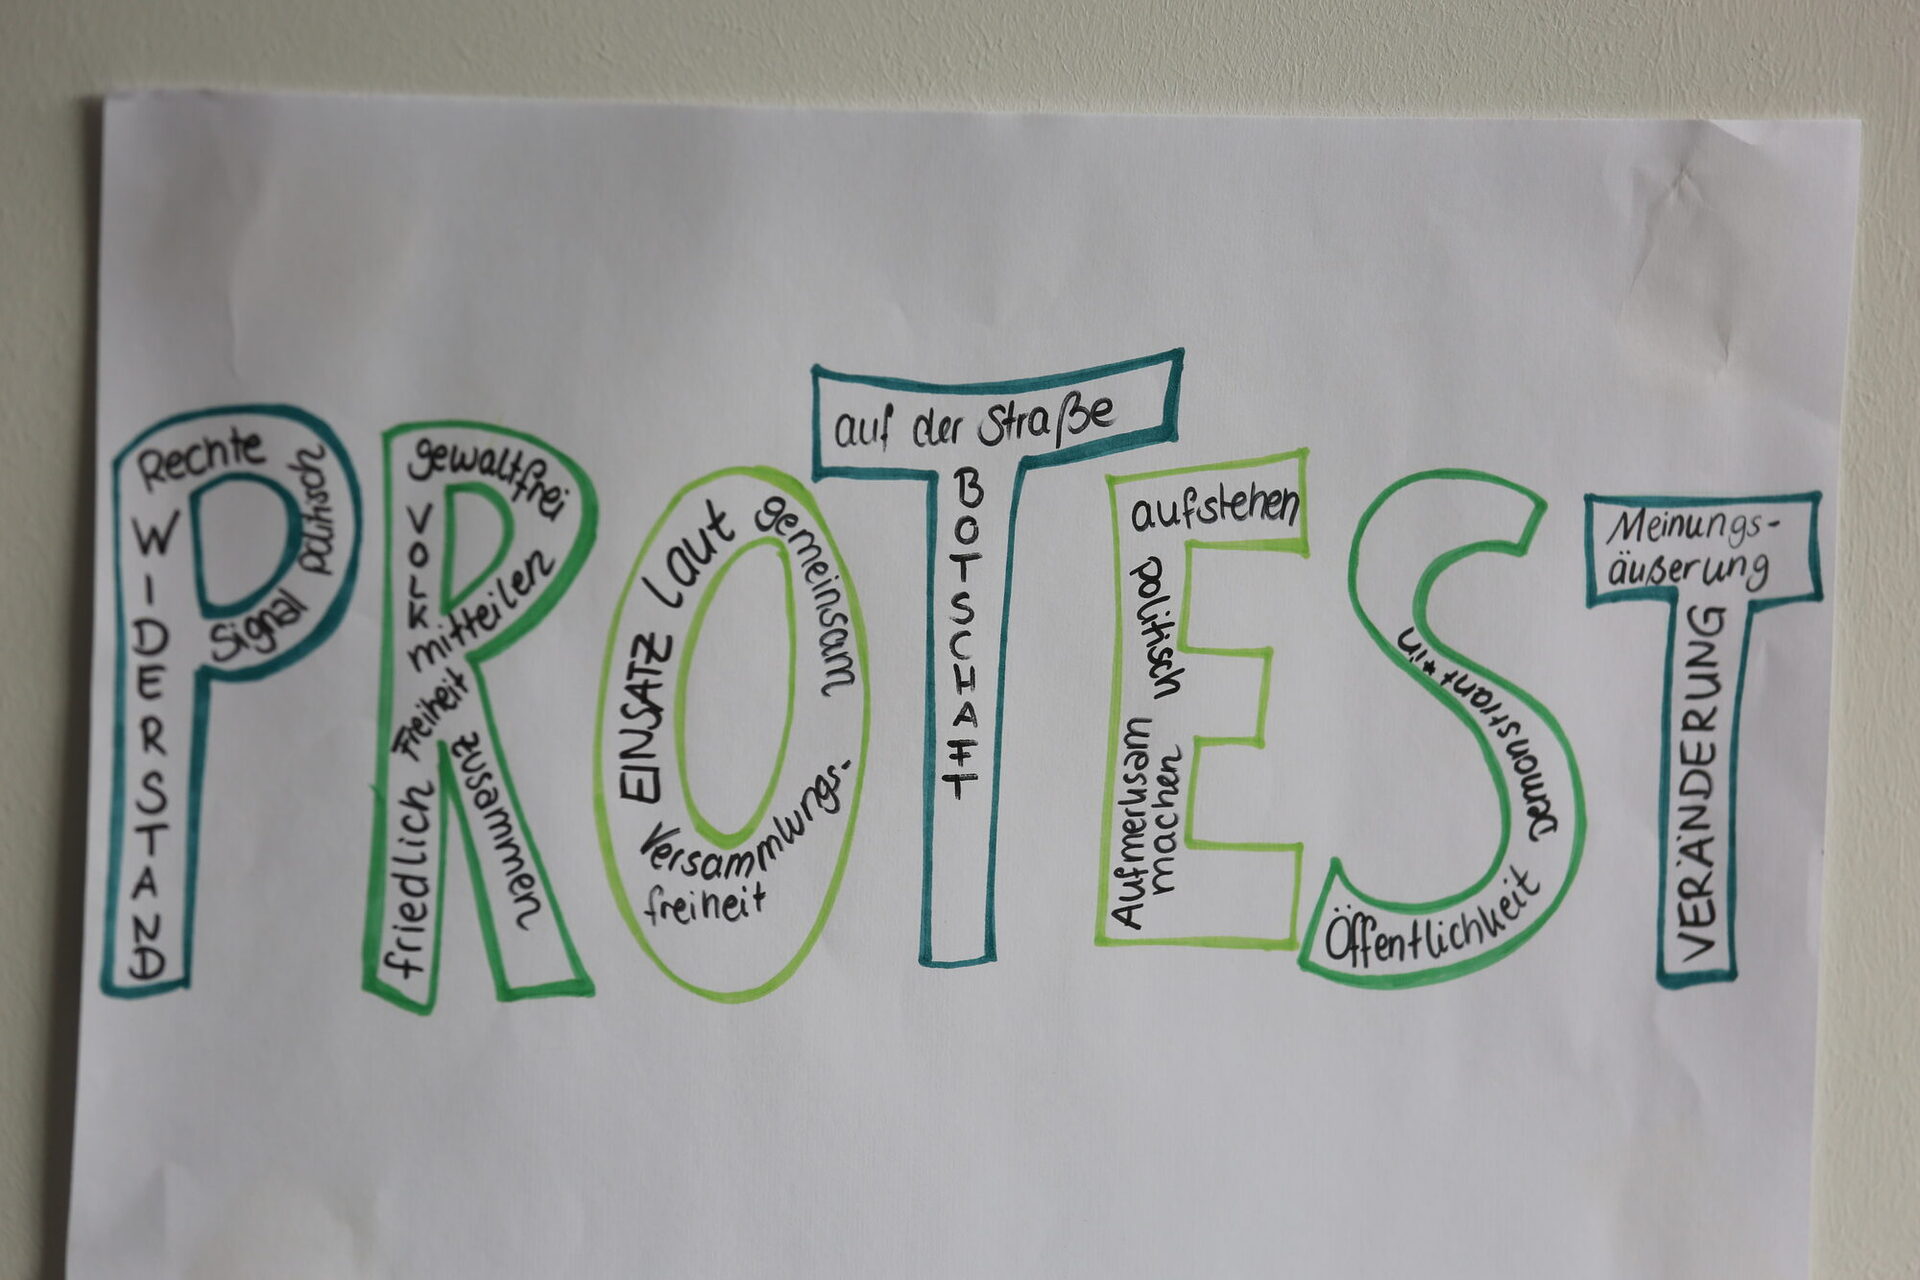 PROTEST
Rechte
politisch
Signal
WIDERSTAND
gewaltfrei
VOLK
mitteilen
Freiheit
friedlich
zusammen
Laut
gemeinsam
EINSATZ
Versammlungs-
freiheit
auf der Straße
BOTSCHAFT
aufstehen
politisch
Aufmerksam
machen
Demonstrant*in
Öffentlichkeit
Meinungs-
äußerung
VERÄNDERUNG